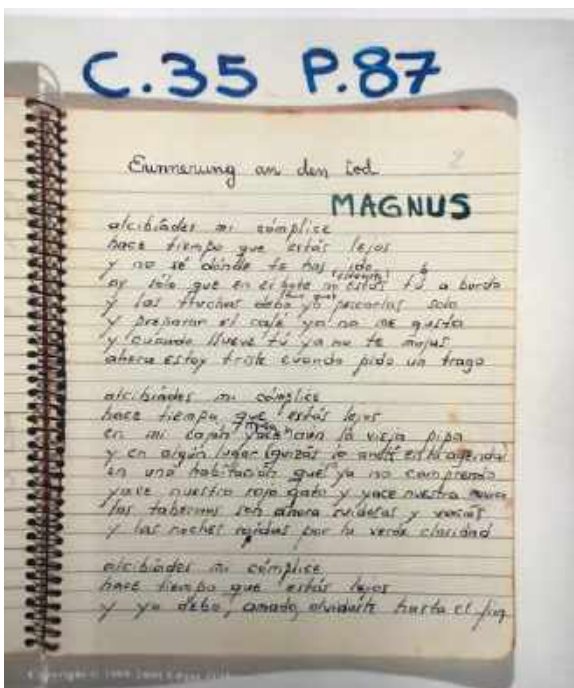 C.35 P.87
2
Erinnerung an den Tod
MAGNUS
alcibíades mi cómplice
hace tiempo que estás lejos
y no sé dónde te has ido
es sólo que en el bote no estás tú a bordo
y las truchas debo yo pescarlas solo
y preparar el café ya no me gusta
y cuando llueve tú ya no te mojas
ahora estoy triste cuando pido un trago
alcibíades mi cómplice
hace tiempo que estás lejos
en mi cajón yace aún la vieja pipa
y en algún lugar (quizás lo anoté en la agenda)
en una habitación que ya no comprendo
yace nuestro rojo gato y yace nuestra
las tabernas son ahora ruidosas y vacías
y las noches rígidas por la verde claridad
alcibíades mi cómplice
hace tiempo que estás lejos
y yo debo, amado, olvidarte hasta el fin